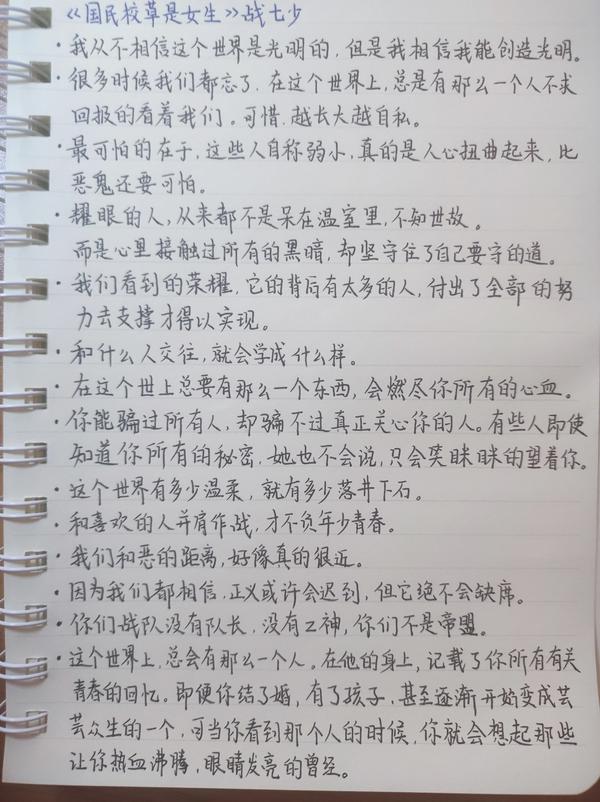 《国民校草是女生》战七少
·我从不相信这个世界是光明的,但是我相信我能创造光明。
·很多时候我们都忘了,在这个世界上,总是有那么一个人不求
回报的看着我们。可惜,越长大越自私。
·最可怕的在于,这些人自称弱小,真的是人心扭曲起来,比
恶鬼还要可怕。
·耀眼的人,从来都不是呆在温室里,不知世故。
而是心里接触过所有的黑暗,却坚守住了自己要守的道。
·我们看到的荣耀,它的背后有太多的人,付出了全部的努
力去支撑才得以实现。
·和什么人交往,就会学成什么样。
·在这个世上总要有那么一个东西,会燃尽你所有的心血。
·你能骗过所有人,却骗不过真正关心你的人。有些人即使
知道你所有的秘密,她也不会说,只会笑眯眯的望着你。
·这个世界有多少温柔,就有多少落井下石。
·和喜欢的人并肩作战,才不负年少青春。
·我们和恶的距离,好像真的很近。
·因为我们都相信,正义或许会迟到,但它绝不会缺席。
·你们战队没有队长,没有Z神,你们不是帝盟。
·这个世界上,总会有那么一个人。在他的身上,记载了你所有有关
青春的回忆。即便你结了婚,有了孩子,甚至逐渐开始变成芸
芸众生的一个,可当你看到那个人的时候,你就会想起那些
让你热血沸腾,眼睛发亮的曾经。